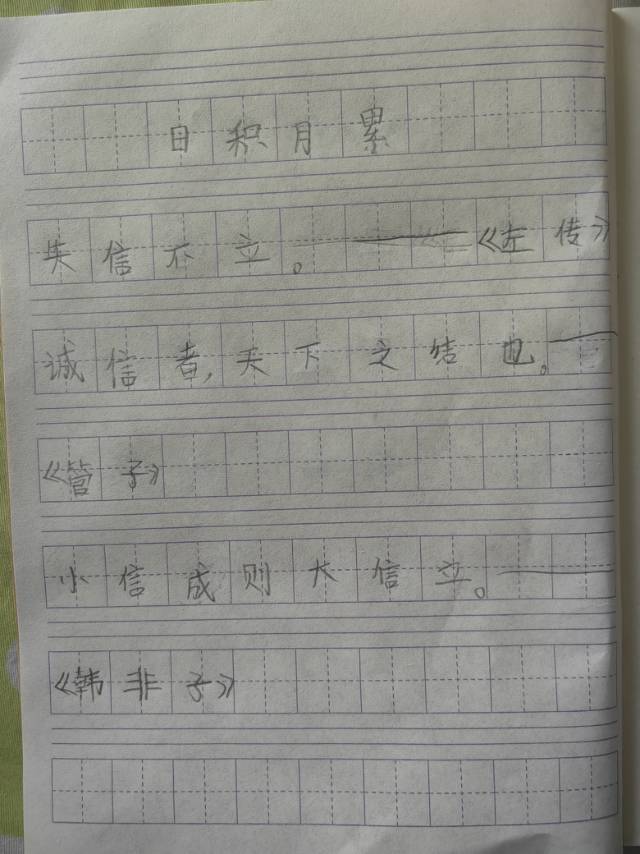 日积月累
失信不立。——《左传》
诚信者,天下之结也。——
《管子》
小信成则大信立。——
《韩非子》